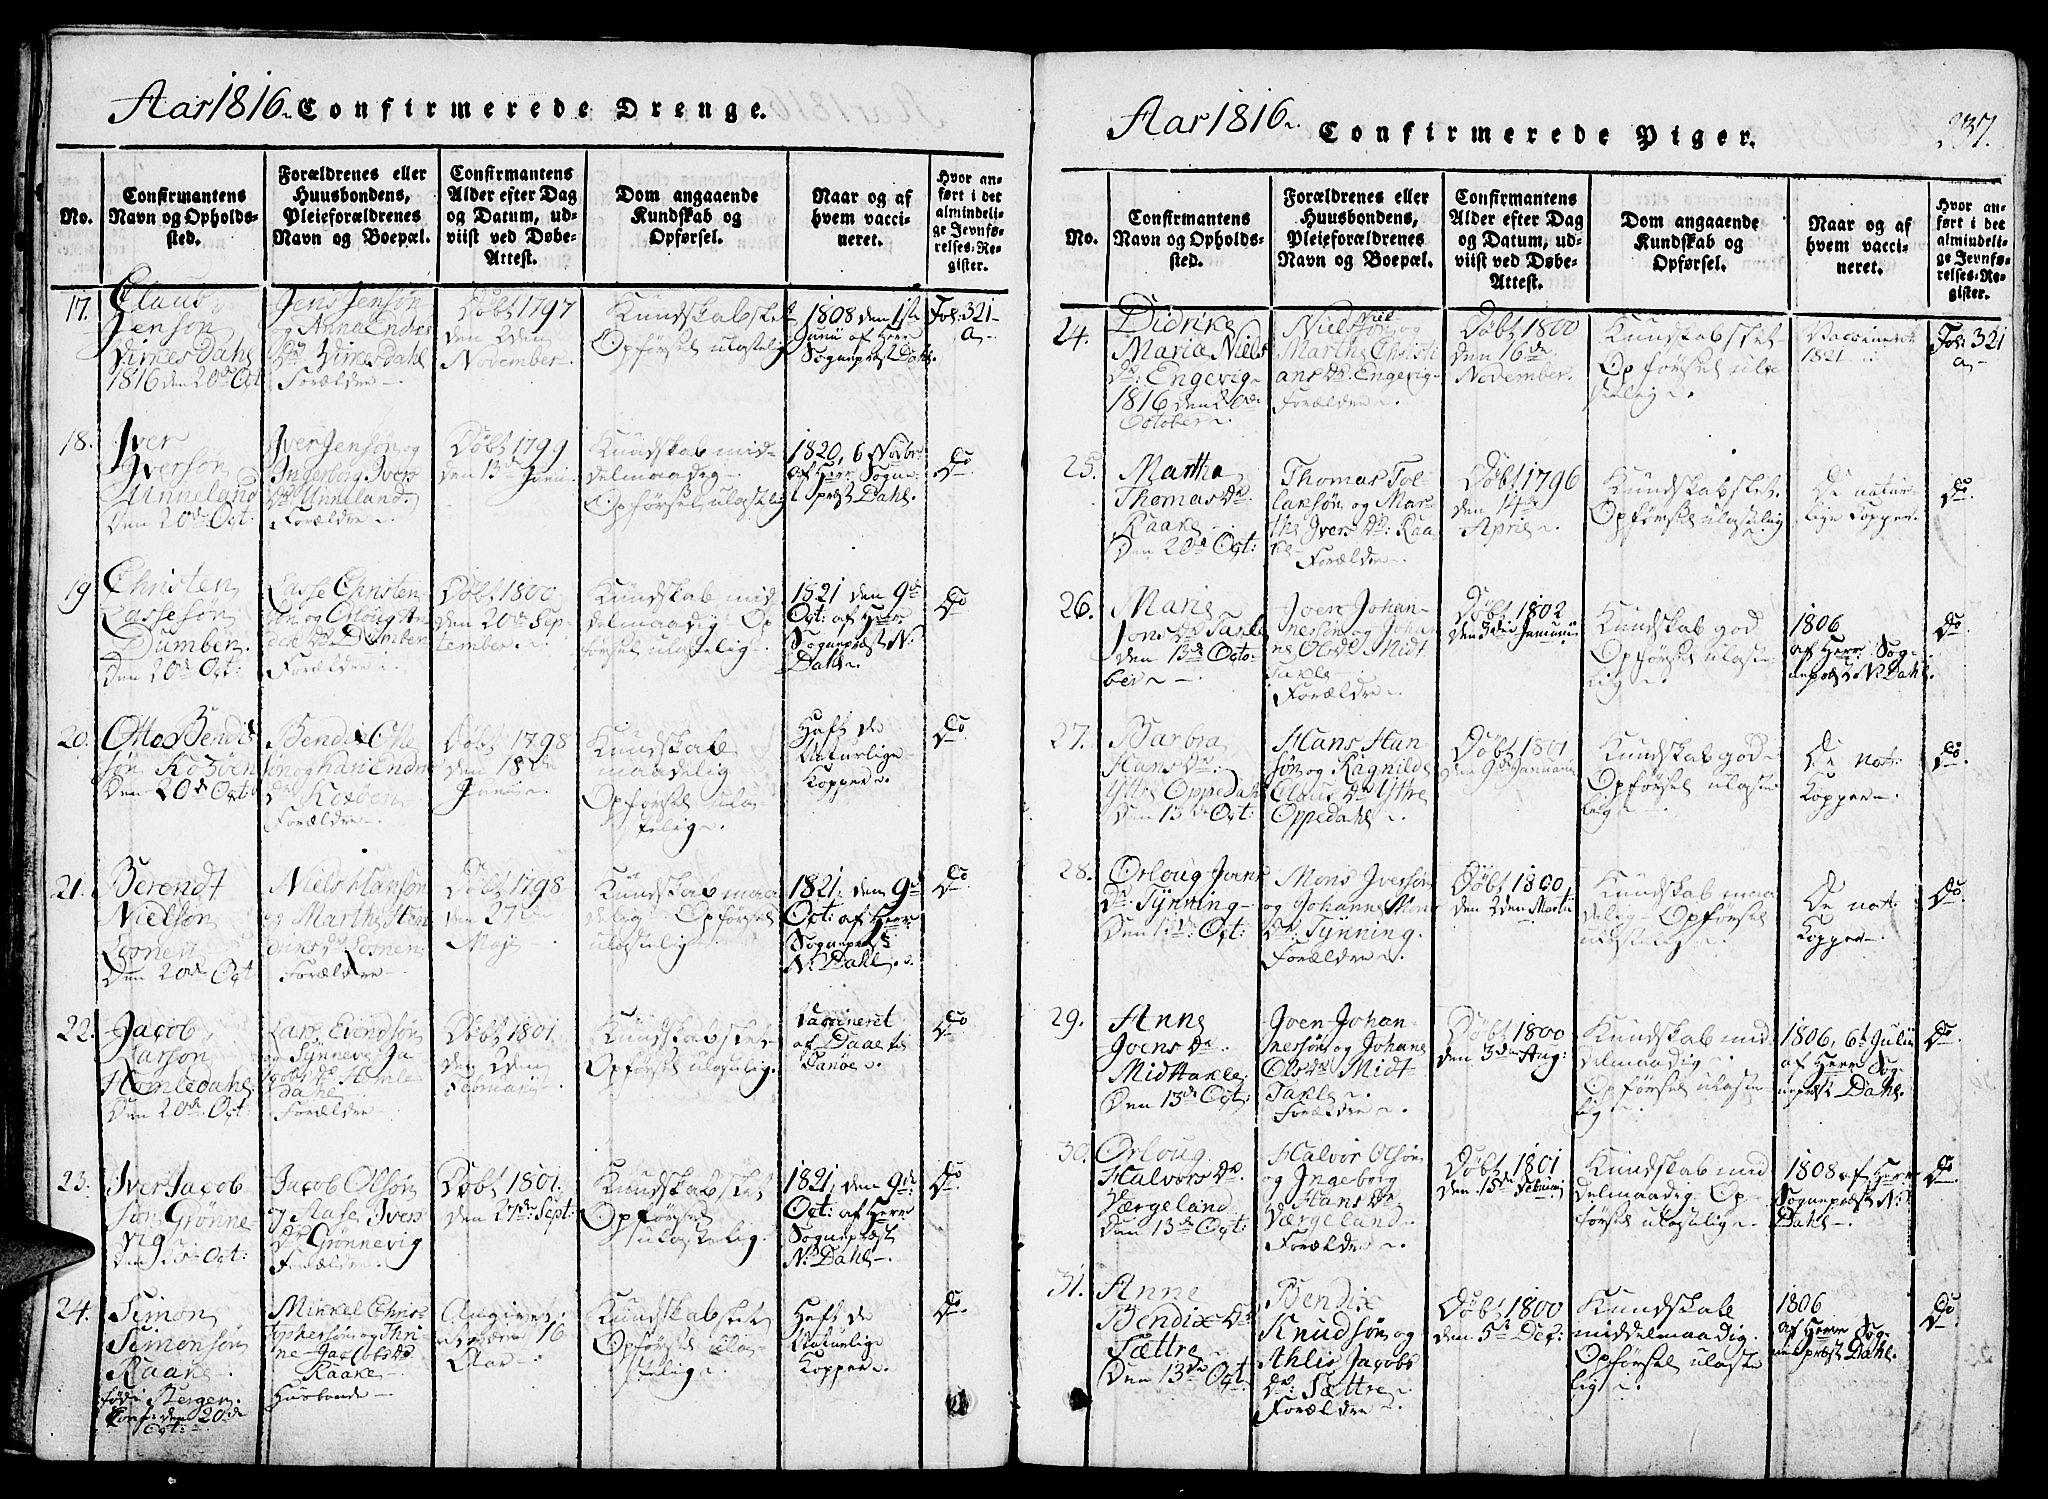 Aar 1816. Confirmerede Drenge.
No.
Confirmantens
Navn og Opholds-
sted.
Forældrenes eller
Huusbondens,
Pleieforældrenes
Navn og Boepæl.
Confirmantens
Alder efter Dag
og Datum, ud-
viist ved Døbe-
Attest.
Dom angaaende
Kundskab og
Opførsel.
Naar og af
hvem vacci-
neret.
Hvor an-
ført i det
almindeli-
ge Jevnfø-
relses-Re-
gister.
17.
Claus
Jensøn
1816 den 20de Oct
Jens Jensøn
og Anna
Forældre
Døbt 1797
den 2den
November
Kundskab slet
Opførsel ulastelig
1808 den 1ste
Junii af Herr
Sogneprest Dahl.
Fol: 321
a
18.
Iver
Iversøn
Unneland
Den 20de Oct:
Iver Jensøn og
Ingeborg Ivers
Dr Unneland.
Forældre
Døbt 1799
den 13de Junii
Kundskab mid-
delmaadig
Opførsel ulastelig
1820, 6 Novbr
af Herr Sogne-
prest Dahl.
Do
19
Christen
Lassesøn
Dumben
Den 20de Oct:
Lasse Christen
søn og Orloug An
Dr Dumben
Forældre
Døbt 1800
den 20de Sep-
tember
Kundskab mid
delmaadig Op
førsel ulastelig
1821 den 9de
Oct: af Herr
Sogneprest N:
Dahl
Do
20.
Otto Bendix
søn
Den 20de Oct
Bendix Otte
søn og Kari
Forældre
Døbt 1798
den 18de
Junii
Kundskab
maadelig
Opførsel ulas-
telig
Haft de
Naturlige
Kopper
Do
21.
Berendt
Nielsøn
Den 20de Oct
Niels Hansøn
og Marthe
Forældre
Døbt 1798
den 27de
Maji
Kundskab maa
delig Opførsel
ulastelig
1821, den 9de
Oct: af Herr
Sogneprest
N: Dahl
Do
22.
Jacob
Larsøn
Den 20de Oct
Lars
og Synnevi Ja
cobs Dr
Dahl
Forældre
Døbt 1801
den 2den
Kundskab slet
Opførsel ulastelig.
Vaccineret
af Daae
Do
23.
Iver Jacob
søn Grønne
vig
Jacob Olsøn
og Aase Ivers
Dr Grønnevig
Forældre
Døbt 1801.
den 27de Sept:
Kundskab slet
Opførsel
ulastelig.
1821, den 9de
Oct: af Herr
Sogneprest
N: Dahl
Do
24.
Simon
Simonsøn
Raake
fød i Bergen
Conf: den 20de
Oct:
Mikkel Chris
tophersøn og Thri-
ne Jacobs Dr
Raake
Husbonde
Angivet
16
Aar
Kundskab slet
Opførsel ulas-
telig
Haft de
Naturlige
Kopper
Do
Aar 1816. Confirmerede Piger. 237.
No.
Confirmantens
Navn og Opholds-
sted.
Forældrenes eller
Huusbondens,
Pleieforældrenes
Navn og Boepæl.
Confirmantens
Alder efter Dag
og Datum, ud-
viist ved Døbe-
Attest.
Dom angaaende
Kundskab og
Opførsel.
Naar og af
hvem vacci-
neret.
Hvor an-
ført i det
almindeli-
ge Jevnfø-
relses-Re-
gister.
24.
Didrike
Maria Niels
Dr: Engevig
1816 den 20de
October
Niels Niel
søn og
Marthe Christi
ans Dr: Engevig
Forældre
Døbt 1800
den 16de
November.
Kundskab slet
Opførsel ulas
telig
Vaccineret
1821
Fol: 321
a
25.
Martha
Thomas Dr
Raake
Den 20de Oct:
Thomas Tol
lansøn og Mar
the Ivers Dr: Raa
ke
Forældre
Døbt 1796
den 14de
April
Kundskab slet.
Opførsel ulastelig
De natur
lige Kopper.
Do
26.
Marie
Joens Dr Takle
den 13de Octo-
ber
Joen Johan-
nessøn og Johan
ne Ols Dr Midt
Takle
Forældre
Døbt 1802
den 3die Januarii
Kundskab god
Opførsel ulaste
lig
1806
af Herr Sog-
neprest N: Dahl.
Do
27.
Barbra
Hans Dr.
Yttre Oppedahl
Den 13de Oct:
Hans Han
søn og Ragnilde
Claus Dr Yttre
Oppedahl
Døbt 1801
den 9de Januarii
Kundskab god
Opførsel ulaste
lig
De nat:
Kopper
Do
28.
Orloug Ivers
Dr: Tynning
Den 13de Oct:
Mons Iversøn
og Johanne Mons
Dr: Tynning.
Forældre
Døbt 1800
den 2den Martii
Kundskab maa
delig Opførsel
ulastelig
De nat:
Kopper
Do
29.
Anne
Joens Dr
Midttakle
Den 13de Oct:
Joen Johan-
nessøn og Johane
Ols Dr Midt
Takle
Forældre
Døbt 1800
den 3de Aug:
Kundskab mid
delmaadig
Opførsel ulaste
lig
1806, 6te Julii
af Herr Sog-
neprest Dahl.
Do
30.
Orloug
Halvors Dr.
Værgeland
Den 13de Oct:
Halvor Olsøn
og Ingeborg
Hans Dr
Værgeland
Forældre
Døbt 1801
den 15de Februarii
Kundskab mid
delmaadig. Op-
førsel ulastelig
1808 af Herr
Sogneprest N:
Dahl
Do
31.
Anne
Bendix Dr
Sættre
Den 13de Oct
Bendix
Knudsøn og
Ahlis Jacobs
Dr: Sættre
Forældre
Døbt 1800
den 5te Dec:
Kundskab
middelmaadig.
Opførsel ulaste
lig
1806
af Herr Sog-
neprest Dahl.
Do